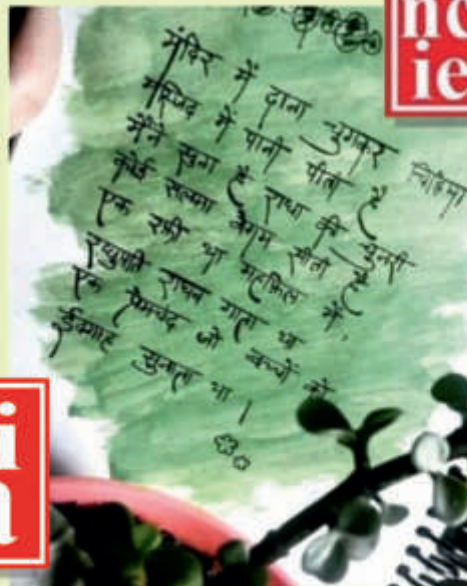 nc
ie
मंदिर में दाना चुगकर चिड़िया
मस्जिद में पानी पीती है
मैंने सुना है राधा की चुनरी
कोई सलमा बेगम सीती है
एक रफ़ी था महफ़िल में,
रघुपति राघव गाता था
एक प्रेमचंद जो बच्चों को
ईदगाह सुनाता था।
i